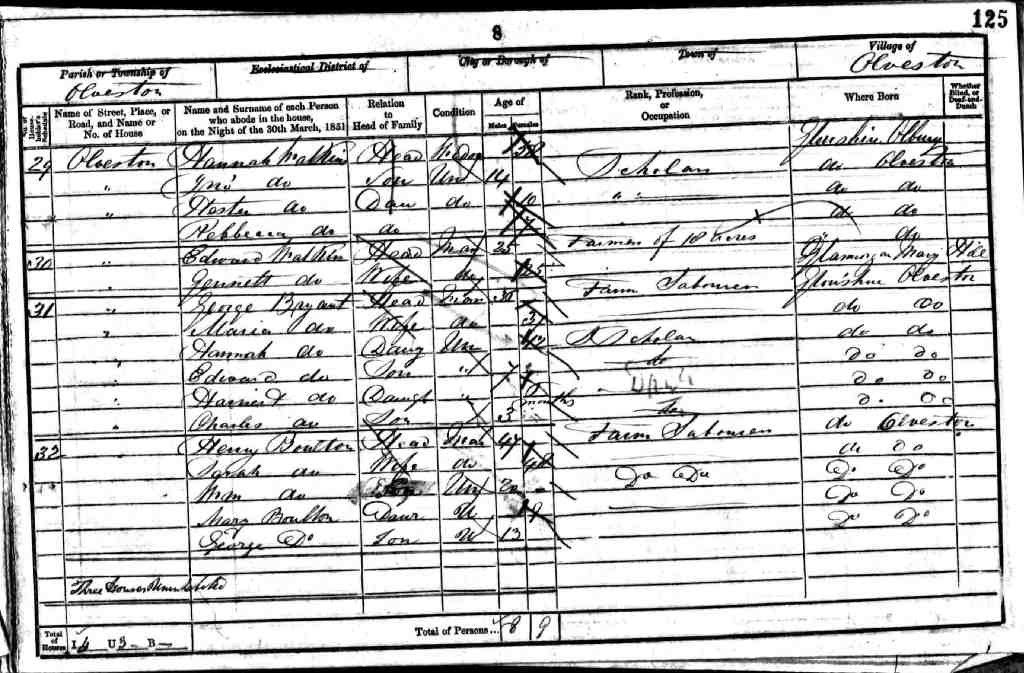 8
125
Parish or Township of
Olveston
Ecclesiastical District of
City or Borough of
Town of
Village of
Olveston
No. of House-holder's Schedule
Name of Street, Place, or Road, and Name or No. of House
Name and Surname of each Person who abode in the house, on the Night of the 30th March, 1851
Relation to Head of Family
Condition
Age of
Males
Females
Rank, Profession, or Occupation
Where Born
Whether Blind, or Deaf-and-Dumb
29 Olveston Hannah Watkins Head
" do Son Un 14 Scholar do Olveston
" Hester do Dau do 10 " " do do
Rebbecca do do do do
30 " Edward Watkins Head Mar 25 Farmer of 18 Acres do
" Jennett do Wife do Glamorgan
31 " George Bryant Head Mar Farm Labourer Olveston
" Maria do Wife do do Do
" Hannah do Daug Un 12 Scholar do do
" Edward do Son " 7 do Do Do
" Harriet do Daugh " Do Do
" Charles do Son 3 months Do Do
32 " Henry Boulton Head Mar 47 Farm Labourer do Olveston
Sarah do Wife do 48 do Do
Wm do Un 20 Do Do Do Do
Mary Boulton Daur U Do Do
George Do Son U 13 Do Do
Three Houses Uninhabited
Total of Houses I U 3 B —
Total of Persons... 8 9